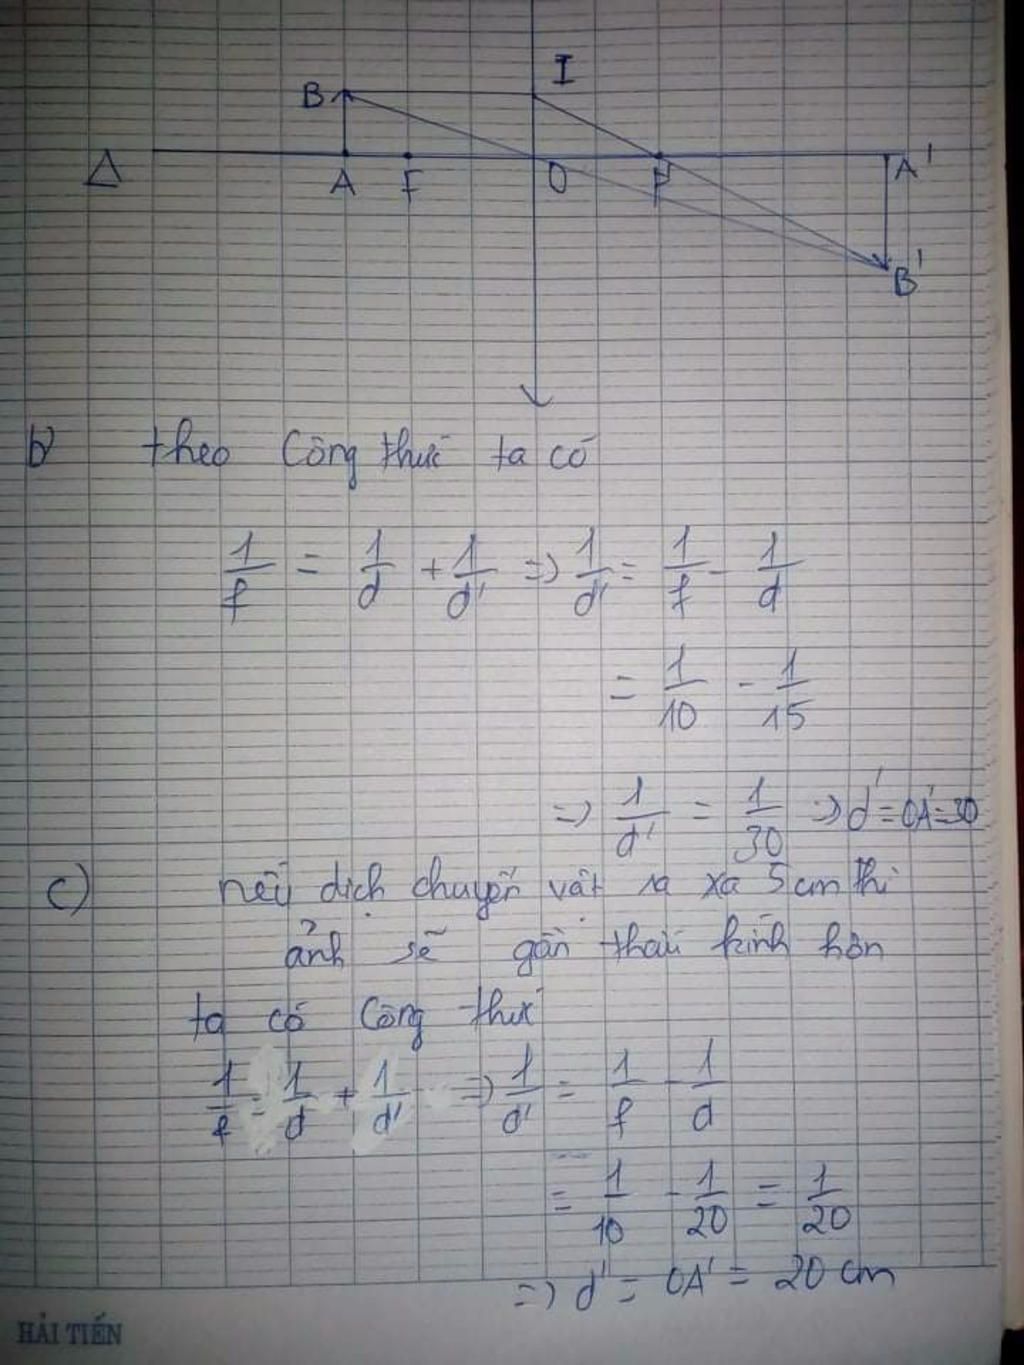 I
B
Δ A F O F' A'
B'
b) theo Công thức ta có
1/f = 1/d + 1/d' => 1/d' = 1/f - 1/d
= 1/10 - 1/15
=> 1/d' = 1/30 => d' = OA' = 30
c) nếu dịch chuyển vật ra xa 5cm thì
ảnh sẽ gần thấu kính hơn
ta có Công thức
1/f = 1/d + 1/d' => 1/d' = 1/f - 1/d
= 1/10 - 1/20 = 1/20
=> d' = OA' = 20 cm
HẢI TIẾN